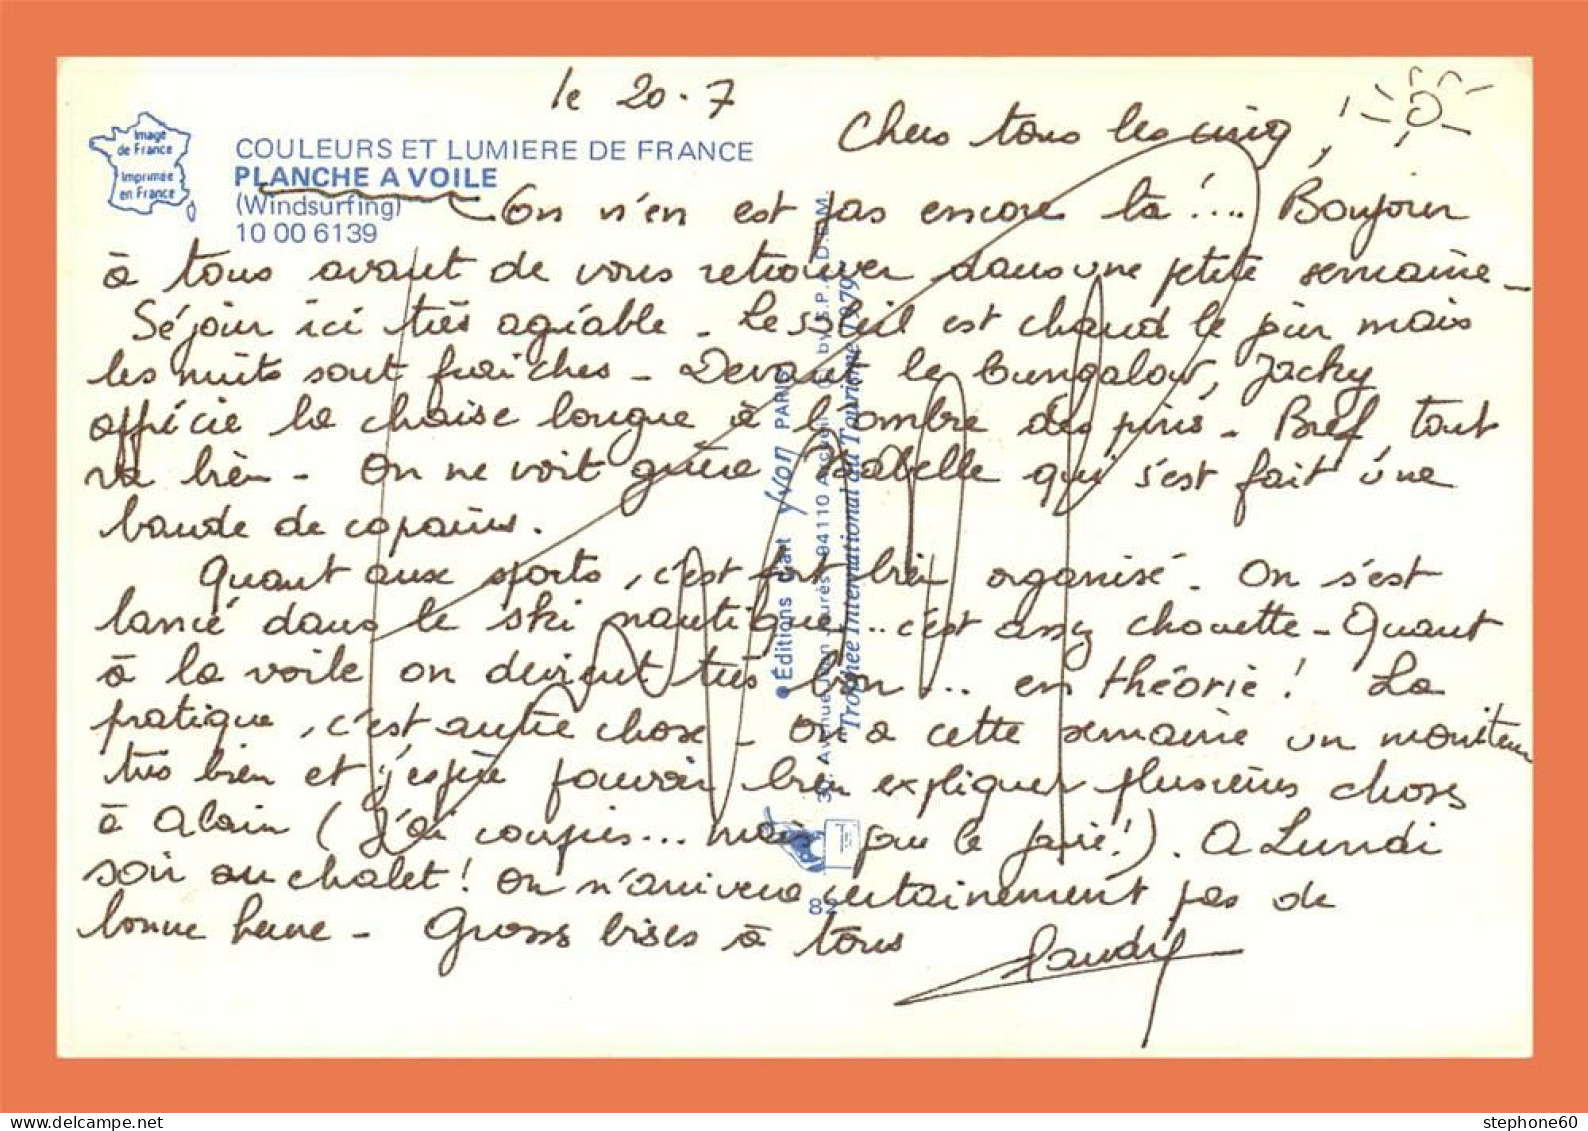 le 20.7
Chers tous les cinq,
Image
de France
Imprimée
en France
COULEURS ET LUMIERE DE FRANCE
PLANCHE A VOILE
(Windsurfing)
10 00 6139
On n'en est pas encore là !... Bonjour
à tous avant de vous retrouver dans une petite semaine -
Séjour ici très agréable - Le soleil est chaud le jour mais
les nuits sont fraîches - Devant le bungalow, Jacky
apprécie la chaise longue à l'ombre des pins - Bref, tout
va bien - On ne voit guère Isabelle qui s'est fait une
bande de copains.
Quant aux sports, c'est fort bien organisé - On s'est
lancé dans le ski nautique... c'est assez chouette - Quant
à la voile on devient très bon... en théorie ! La
pratique, c'est autre chose - On a cette semaine un moniteur
très bien et j'espère pouvoir bien expliquer plusieurs choses
à Alain (j'ai compris... mais pour le faire !). A Lundi
soir au chalet ! On n'arrivera certainement pas de
bonne heure - Grosses bises à tous
Claudy
Éditions d'art YVON PARIS
Avenue Jean Jaurès 94110 Arcueil by S.P.A.D.E.M.
Trophée International du Tourisme 1979
82
stephone60